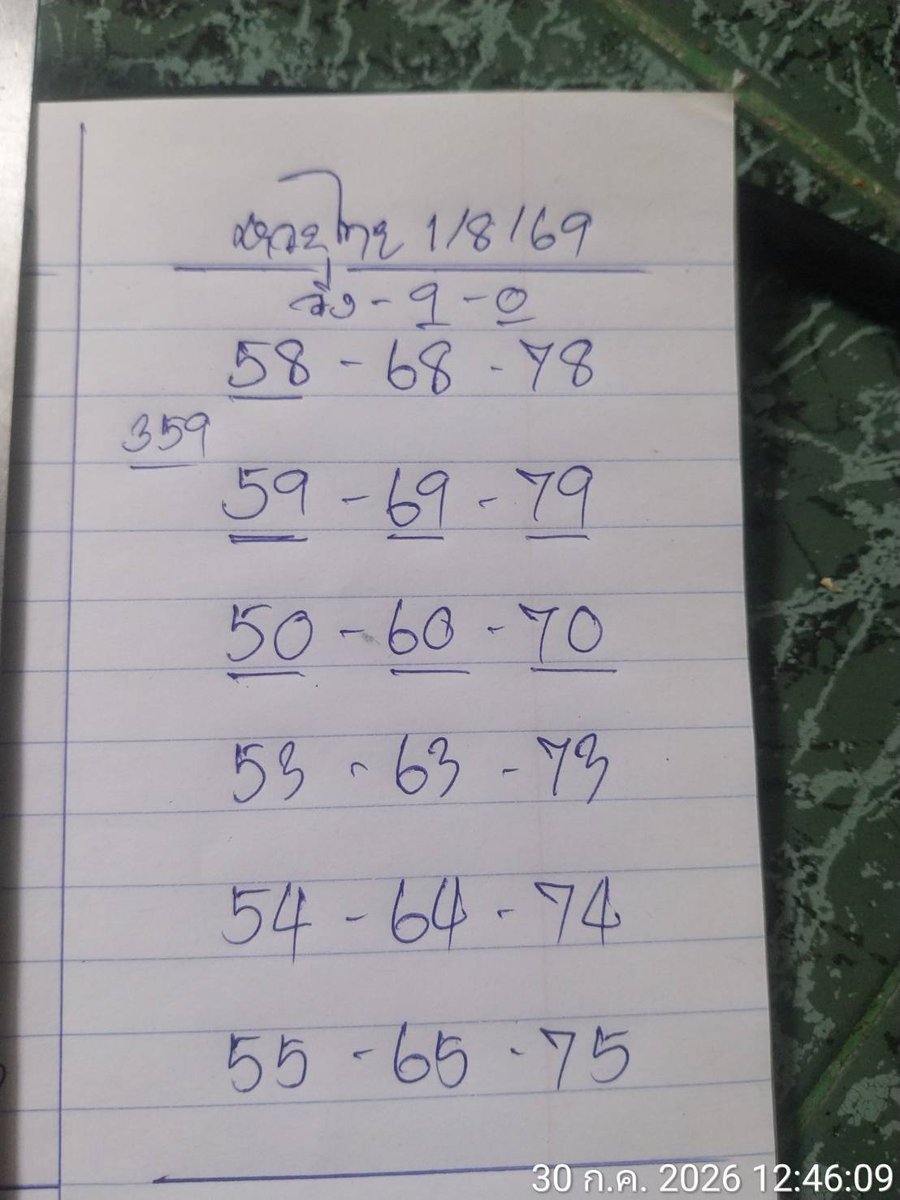 หวยไทย 1/8/69
วิ่ง - 9 - 0
58 - 68 - 78
359
59 - 69 - 79
50 - 60 - 70
53 - 63 - 73
54 - 64 - 74
55 - 65 - 75
30 ก.ค. 2026 12:46:09